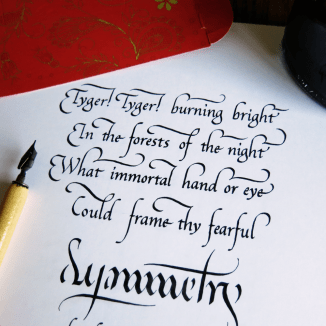 Tyger! Tyger! burning bright
In the forests of the night
What immortal hand or eye
Could frame thy fearful
Symmetry